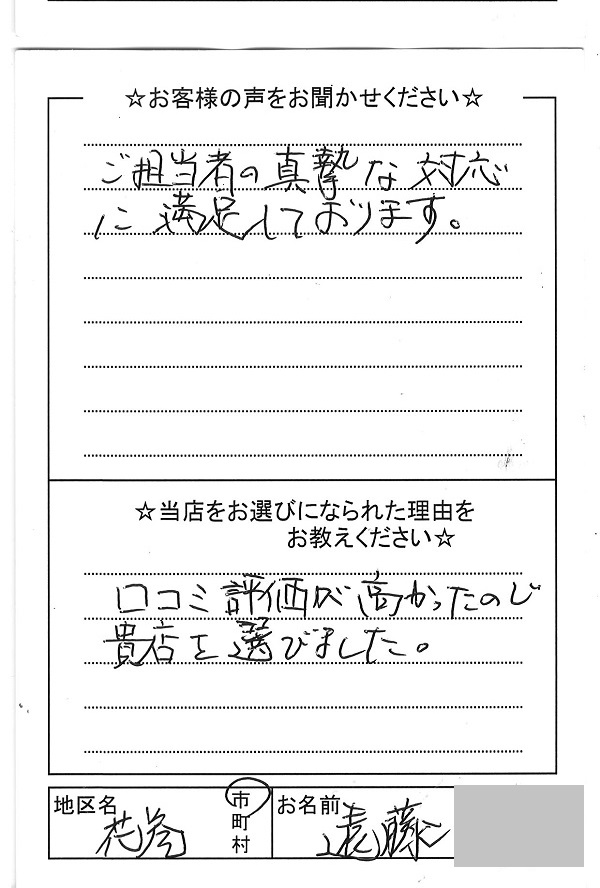 ☆お客様の声をお聞かせください☆
ご担当者の真摯な対応
に満足しております。
☆当店をお選びになられた理由を
お教えください☆
口コミ評価が高かったので
貴店を選びました。
地区名 花巻 市
町
村
お名前 遠藤